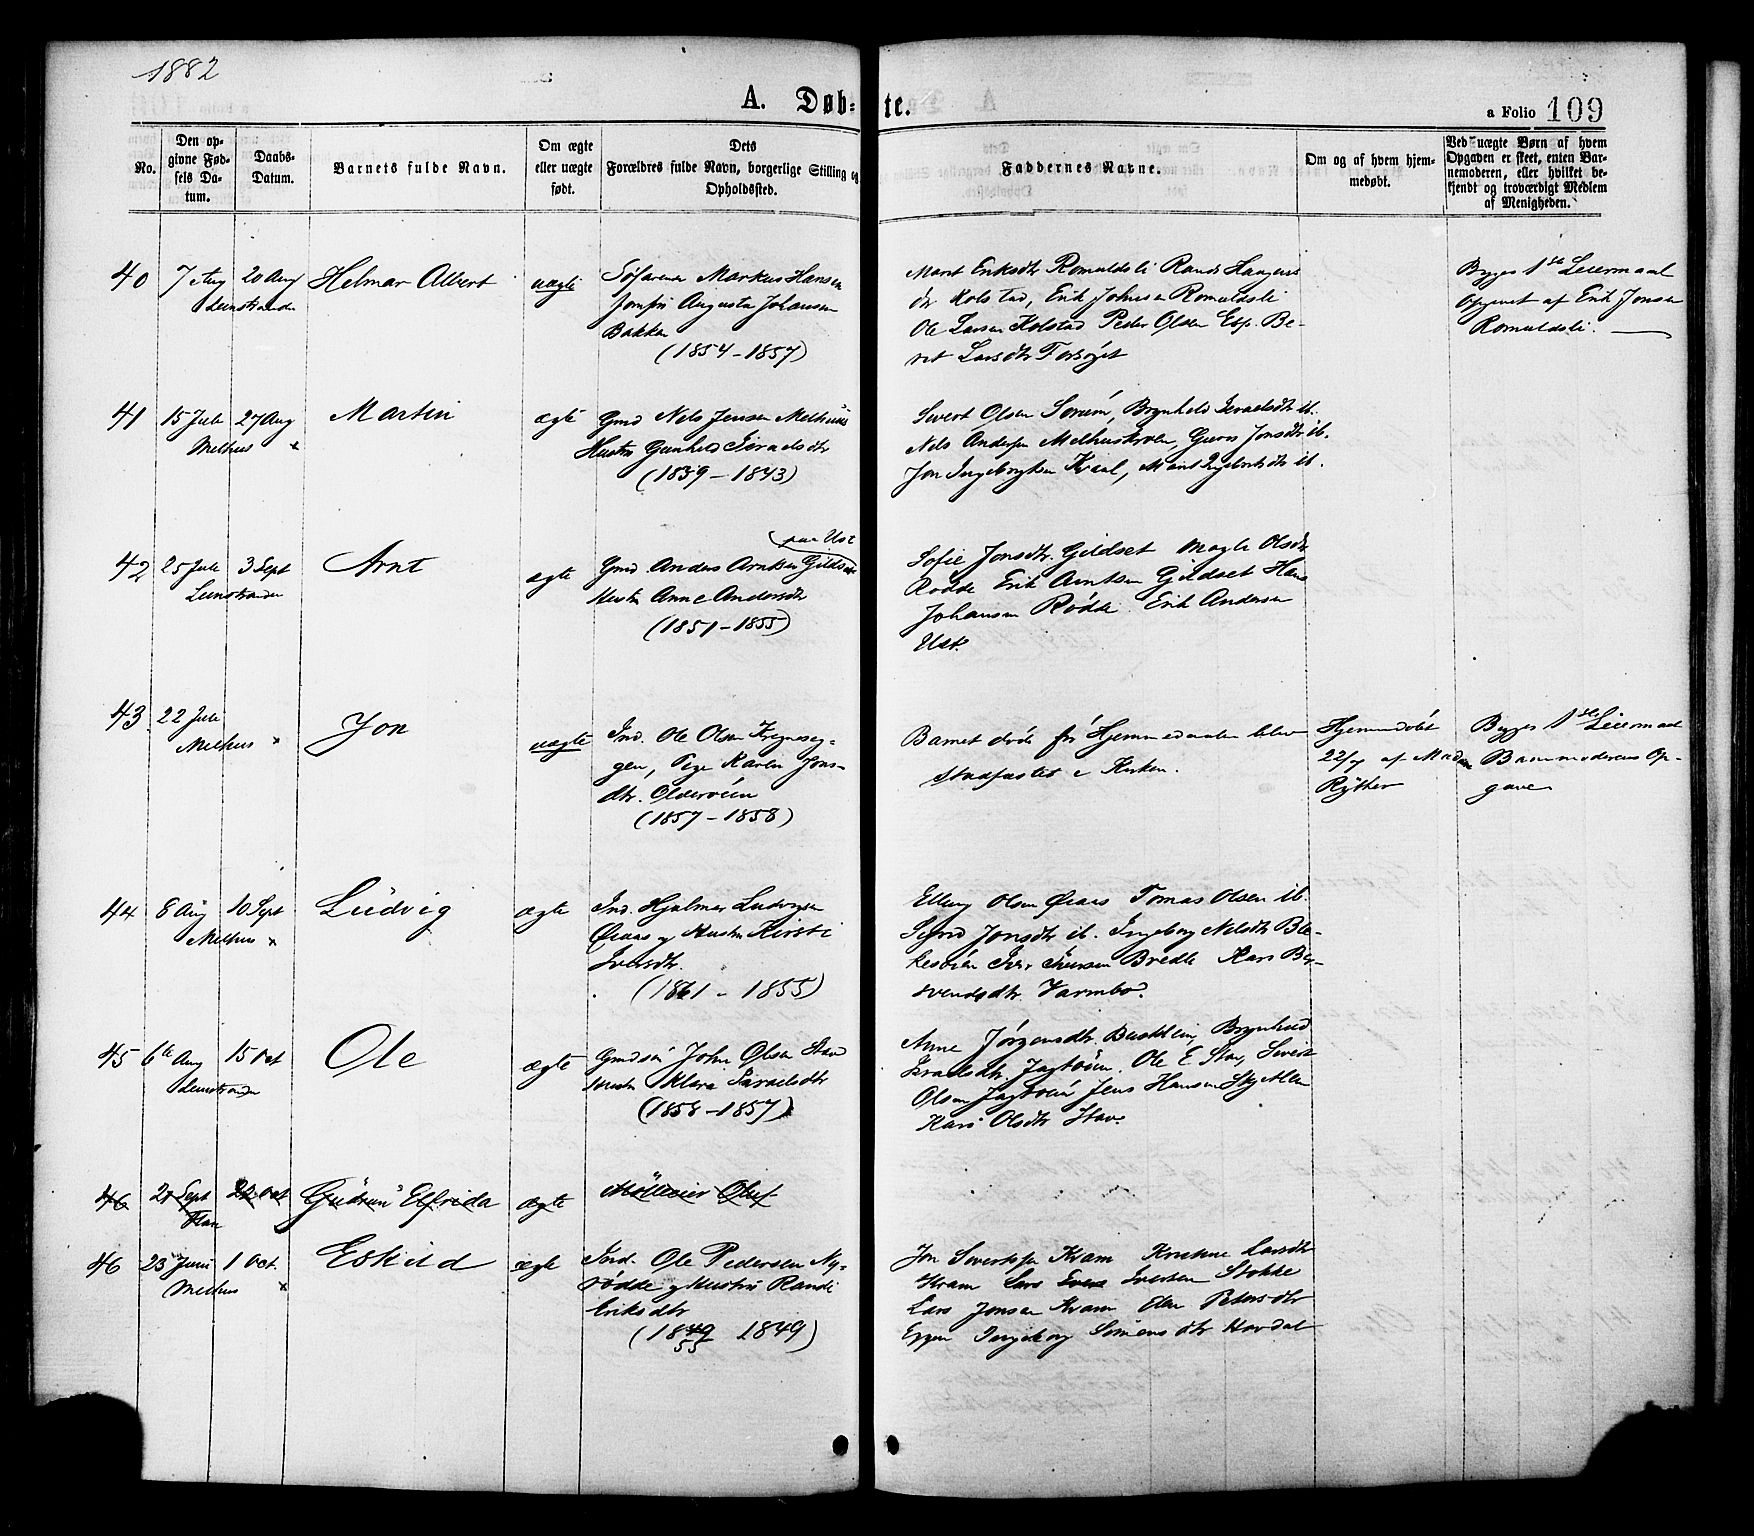 1882
A. Døb-
te.
a Folio 109
No.
Den op-
givne Fød-
sels Da-
tum.
Daabs-
Datum.
Barnets fulde Navn.
Om ægte
eller uægte
født.
Dets
Forældres fulde Navn, borgerlige Stilling og
Opholdssted.
Faddernes Navne.
Om og af hvem hjem-
medøbt.
Ved uægte Børn af hvem
Opgaven er skeet, enten Bar-
nemoderen, eller hvilket be-
kjendt og troværdigt Medlem
af Menigheden.
40 7 Aug 20 Aug Helmar Albert uægte
Leinstranden
Søfarende Markus Hansen
Jomfru Augusta Johansen
Bakken
(1854-1857)
Marit Eriksdtr Romuldsli Randi Haagens
dtr Kolstad, Erik Johnsen Romuldsli
Ole Larsen Kolstad Peder Olsen Esp. Be-
ret Larsdtr
Begges 1ste Leiermaal
Opgivet af Erik Jonsen
Romuldsli.
41 15 Juli 27 Aug Martin ægte
Melhus x
Gmd Nels Jensen Melhus
Hustru Gunhild Israelsdtr
(1839-1843)
Sivert Olsen Brynhild Israelsdtr ib.
Nels Andersen Guru Jonsdtr ib.
Jon Kvaal, Marit ib.
42 25 Juli 3 Sept Arnt ægte
Leinstranden
paa Ust
Gmd. Anders Arntsen Gildset
Hustru Anne Andersdtr
(1851-1855)
Sofie Jonsdtr. Gildset Magli Olsdtr
Rødde Erik Arntsen Gildset Hans
Johansen Rødde. Erik Andersen
Ust.
43. 22 Juli Jon uægte
Melhus x
Ind. Ole Olsen Kregnesey-
gen, Pige Karen Jons-
dtr. Oldervöien
(1857-1858)
Barnet döde för Hjemmedaaben blev
stadfæstet i Kirken.
Hjemmedöbt
22/7 af Madam
Ryther
Begges 1ste Leiermaal
Barnmoderens Op-
gave
44 8 Aug 10 Sept Ludvig ægte
Melhus x
Ind. Hjalmar Ludvigsen
Øiaas og Hustru Kirsti
Iversdtr.
(1861-1855)
Elling Olsen Øiaas Tomas Olsen ib.
Sigrid Jonsdtr ib. Ingeborg Nilsdtr Ble-
kesöien Iver Iversen Bredle Kari Be-
svendsdtr. Varmbo.
45 6te Aug 15 Oct Ole ægte
Leinstranden
Gmdsön John Olsen Stav
Hustru Klara Israelsdtr
(1858-1857)
Anne Jörgensdtr. Brynhild
Israelsdtr. Jagtöien. Ole E Stav, Sivert
Olsen Jagtöien Jens Hansen Skjetlen
Kari Olsdtr Stav.
46 Sept 22 Oct Gudrun Elfrida ægte
Flaa
Mölleier Oluf
46 23 Juni 1 Oct. Eskild ægte
Melhus x
Ind. Ole Pedersen Ny-
rödde og Hustru Randi
Eriksdtr
(1849 1849)
55
Jon Sivertsen Kvam Larsdtr
Kvam Lars Iversen Stokke
Lars Jonsen Kvam Elen Petersdtr
Eggen Ingeborg Simensdtr Hovdal